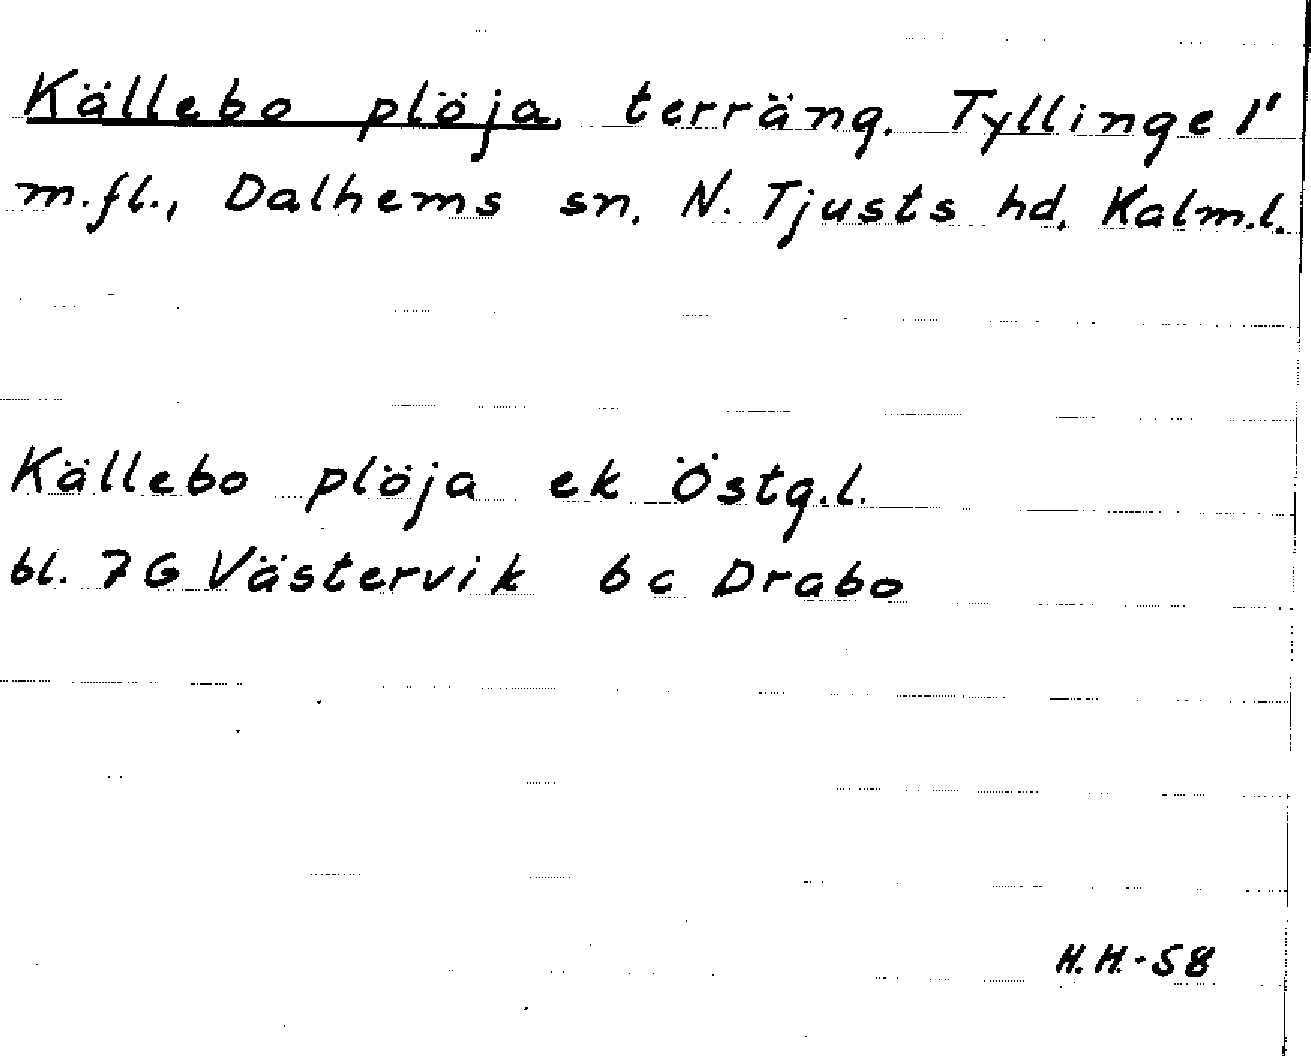 Källebo plöja, terräng. Tyllinge 1'
m.fl., Dalhems sn. N. Tjusts hd. Kalm.l.
Källebo plöja ek Östg.l.
bl. 7G Västervik 6c Drabo
H.H.-58